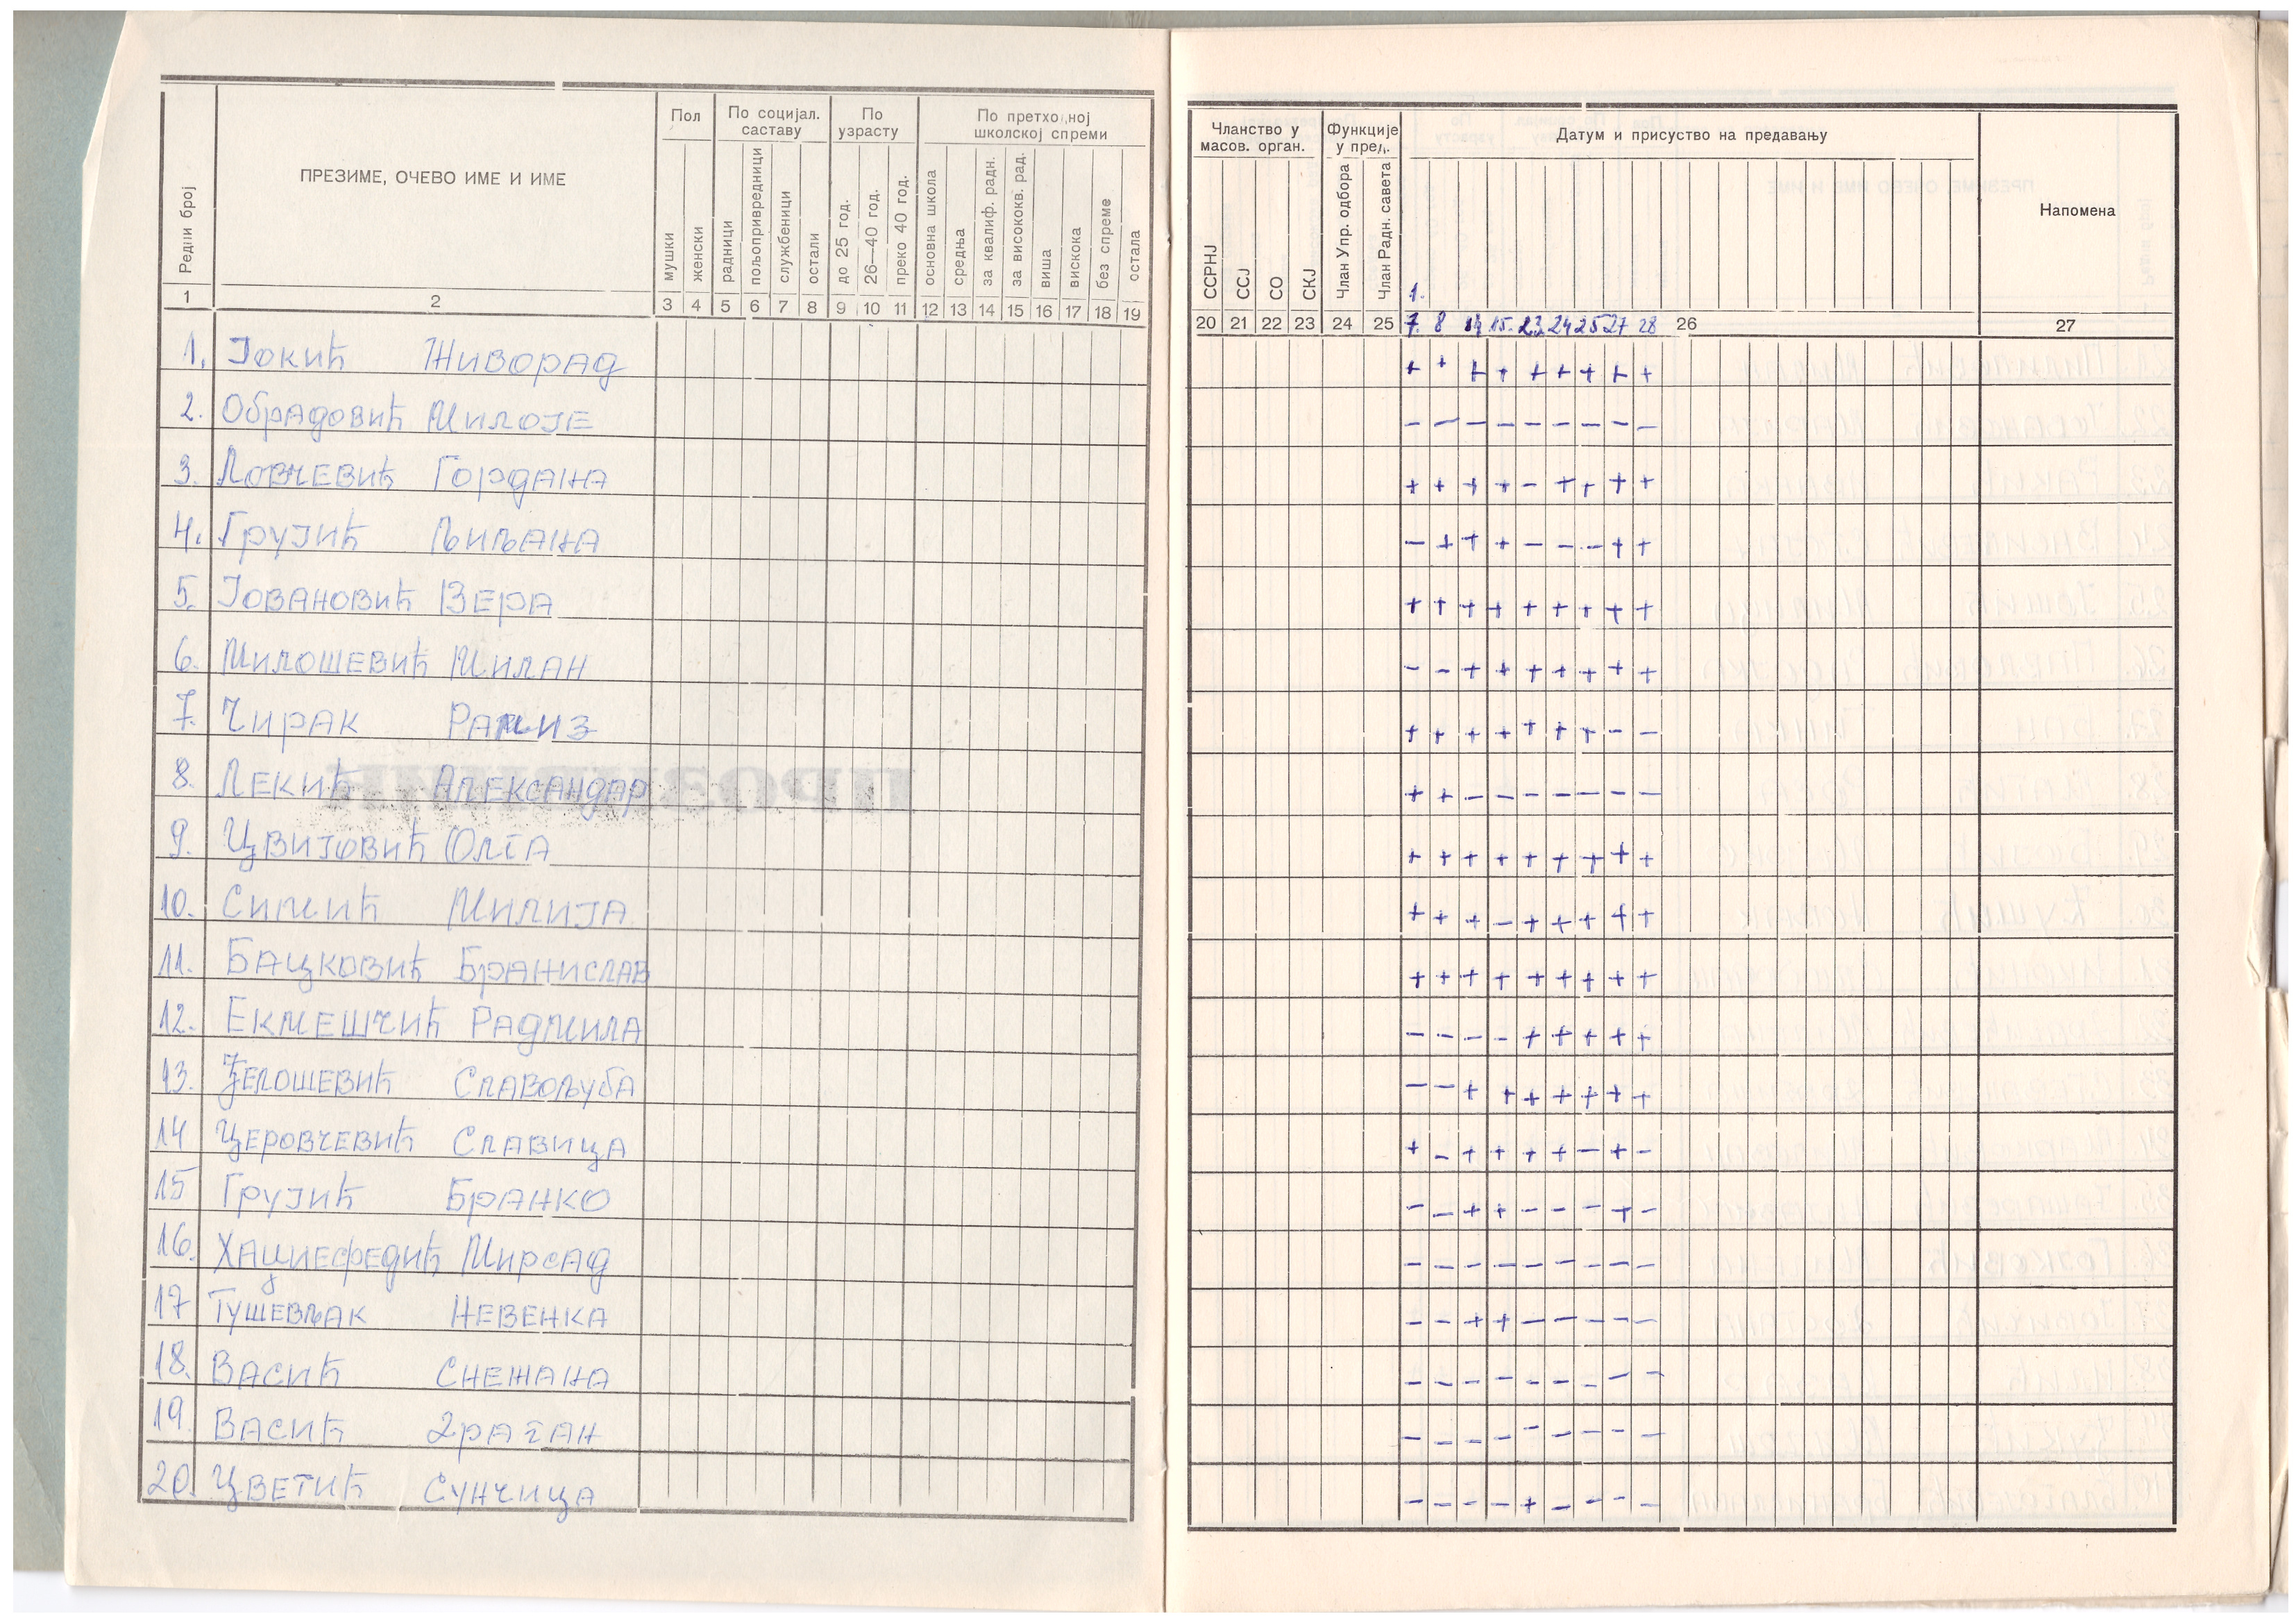 Редни број
ПРЕЗИМЕ, ОЧЕВО ИМЕ И ИМЕ
Пол
мушки
женски
По социјал. саставу
радници
пољопривредници
службеници
остали
По узрасту
до 25 год.
26—40 год.
преко 40 год.
По претходној школској спреми
основна школа
средња
за квалиф. радн.
за висококв. рад.
виша
вискока
без спреме
остала
1 2 3 4 5 6 7 8 9 10 11 12 13 14 15 16 17 18 19
1. Јокић Живорад
2. Обрадовић Милоје
3. Ловчевић Гордана
4. Грујић Љиљана
5. Јовановић Вера
6. Милошевић Милан
7. Чирак Рамиз
8. Лекић Александар
9. Цвијовић Олга
10. Симић Милија
11. Бацковић Бранислав
12. Екмешчић Радмила
13. Ђелошевић Славољуба
14 Церовчевић Славица
15 Грујић Бранко
16. Хаџиефедић Мирсад
17 Тушевљак Невенка
18. Васић Снежана
19. Васић Драган
20. Цветић Сунчица
Чланство у масов. орган.
ССРНЈ
ССЈ
СО
СКЈ
Функције у пред.
Члан Упр. одбора
Члан Радн. савета
Датум и присуство на предавању
Напомена
1.
20 21 22 23 24 25 7. 8 14 15. 23. 24 25 27 28 26 27
+ + + + + + + + +
− − − − − − − − −
+ + + + − + + + +
− + + + − − − + +
+ + + + + + + + +
− − + + + + + + +
+ + + + + + + − −
+ + − − − − − − −
+ + + + + + + + +
+ + + − + + + + +
+ + + + + + + + +
− − − − + + + + +
− − + + + + + + +
+ − + + + + − + −
− − + + − − − + −
− − − − − − − − −
− − + + − − − − −
− − − − − − − − −
− − − − − − − − −
− − − − + − − − −